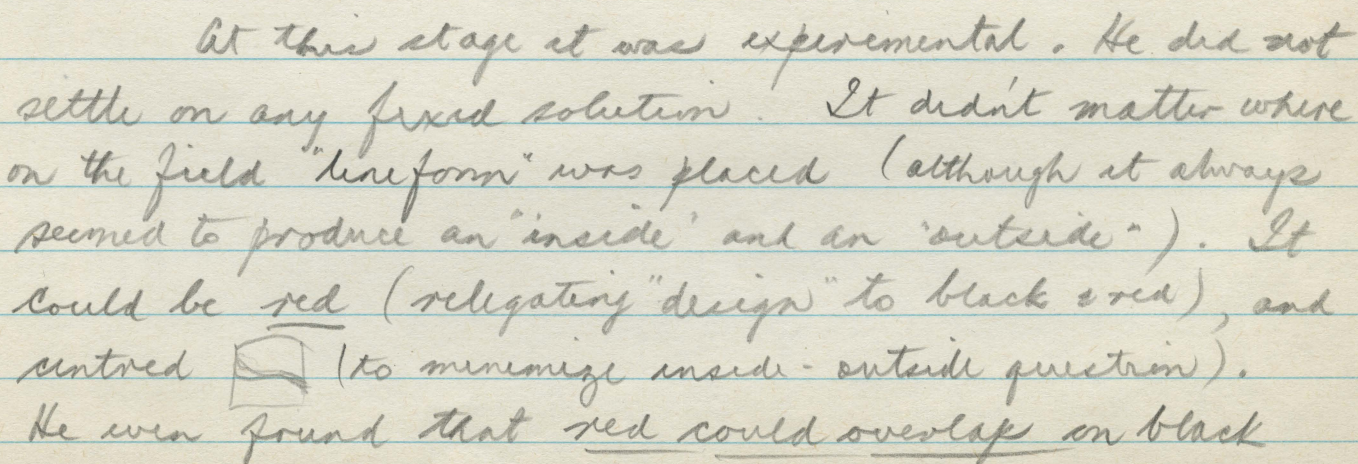 At this stage it was experimental. He did not
settle on any fixed solution. It didn't matter where
on the field "lineform" was placed (although it always
seemed to produce an "inside' and an 'outside"). It
could be red (relegating "design" to black & red), and
centred (to minimize inside-outside question).
He even found that red could overlap on black